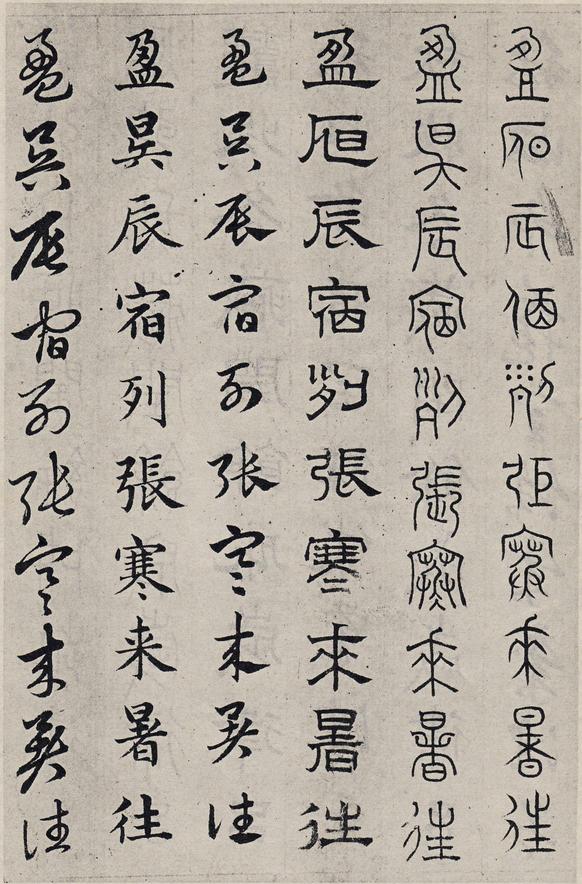 盈昃辰宿列張寒來暑往
盈昃辰宿列張寒來暑往
盈昃辰宿列張寒來暑往
盈昃辰宿列張寒来暑往
盈昃辰宿列張寒来暑往
盈昃辰宿列張寒来暑往